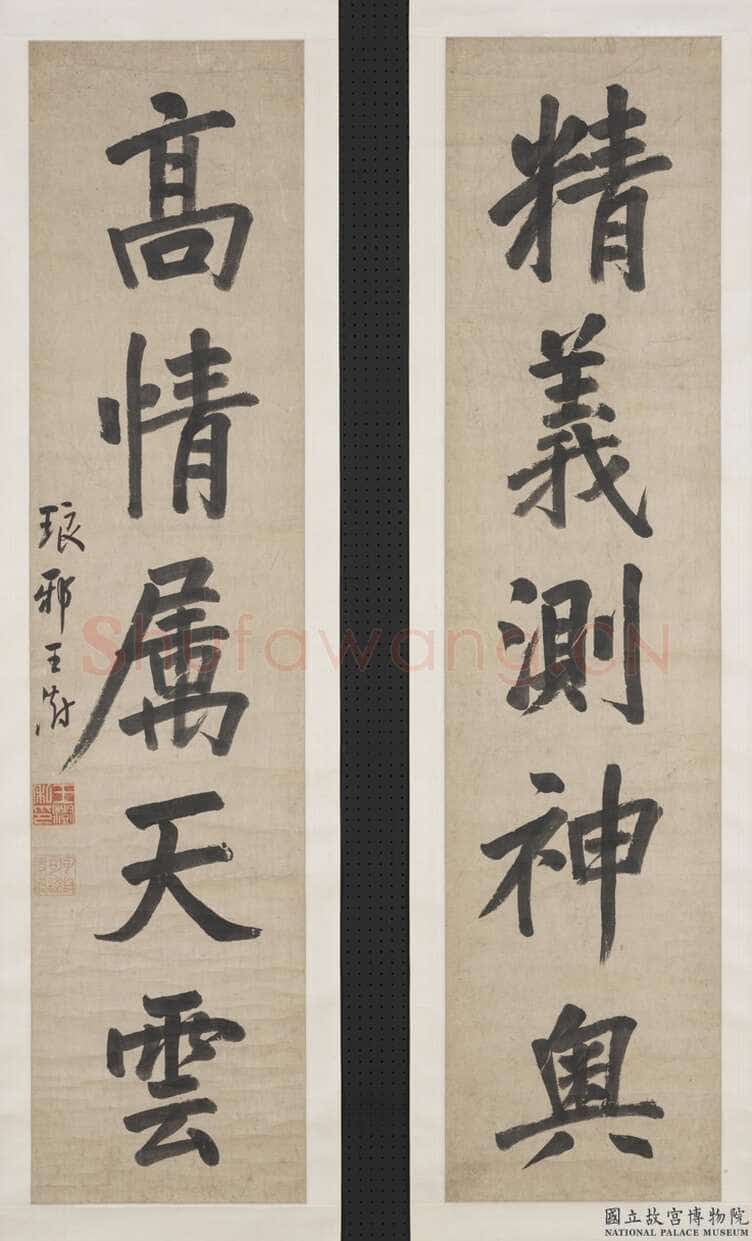 精義測神奥
髙情属天雲
琅邪王澍
王澍私印
Shufawang.CN
國立故宮博物院
NATIONAL PALACE MUSEUM